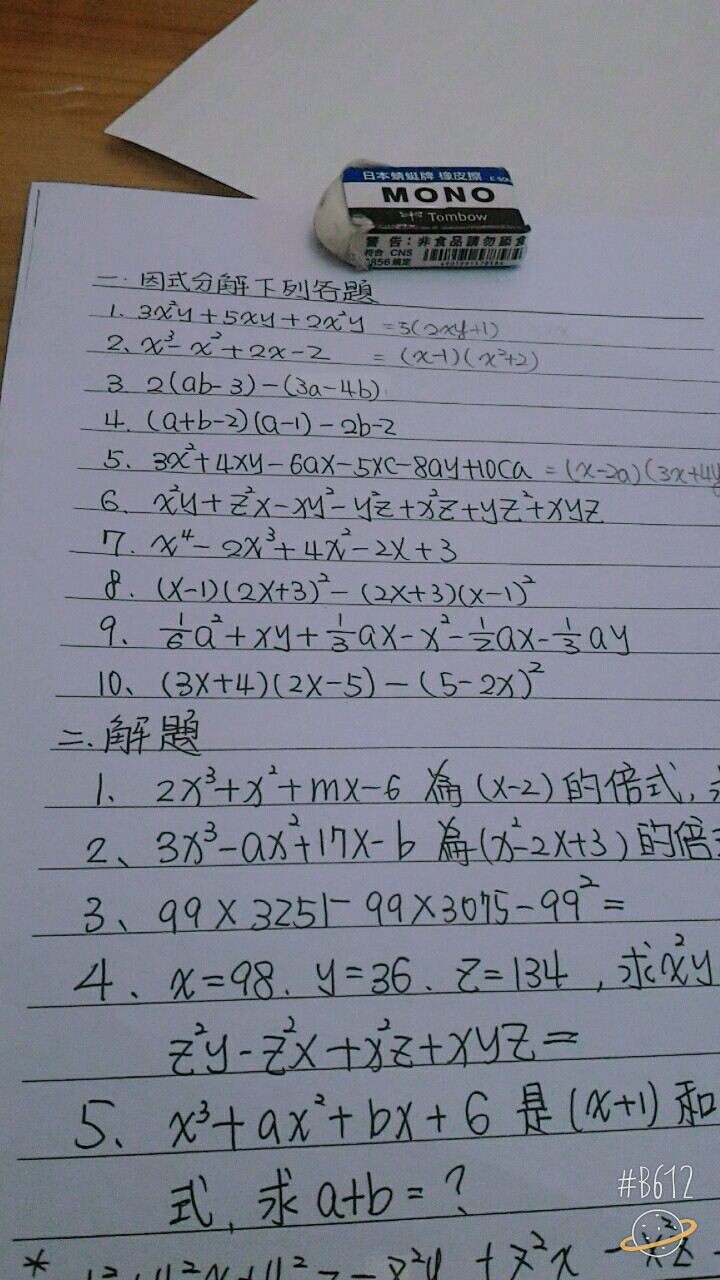 日本蜻蜓牌 橡皮擦
MONO
Tombow
警告:非食品請勿舔食
符合 CNS
6856 規定
一. 因式分解下列各題
1. 3x²y + 5xy + 2x²y = 5(2xy+1)
2. x³ - x² + 2x - 2 = (x-1)(x²+2)
3. 2(ab-3) - (3a-4b)
4. (a+b-2)(a-1) - 2b-2
5. 3x² + 4xy - 6ax - 5xc - 8ay + 10ca = (x-2a)(3x+4y
6. x²y + z²x - xy² - y²z + x²z + yz² + xyz
7. x⁴ - 2x³ + 4x² - 2x + 3
8. (x-1)(2x+3)² - (2x+3)(x-1)²
9. 1/6a² + xy + 1/3ax - x² - 1/2ax - 1/3ay
10、(3x+4)(2x-5) - (5-2x)²
二. 解題
1、2x³+x²+mx-6 為 (x-2) 的倍式,
2、3x³-ax²+17x-b 為 (x²-2x+3) 的倍
3、99×3251-99×3075-99² =
4、x=98、y=36、z=134, 求x²y
z²y - z²x + x²z + xyz =
5、x³+ax²+bx+6 是 (x+1) 和
式, 求 a+b = ?
#B612